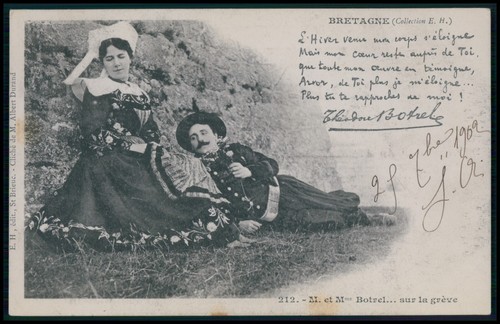 BRETAGNE (Collection E. H.)
L'Hiver venu mon corps s'éloigne
Mais mon cœur reste auprès de Toi.
que toute mon œuvre en témoigne,
Arvor, de Toi plus je m'éloigne...
Plus tu te rapproches de moi !
Théodore Botrel
25 7bre 1902
E. H., édit., St Brieuc. - Cliché de M. Albert Durand
212. - M. et Mme Botrel... sur la grève